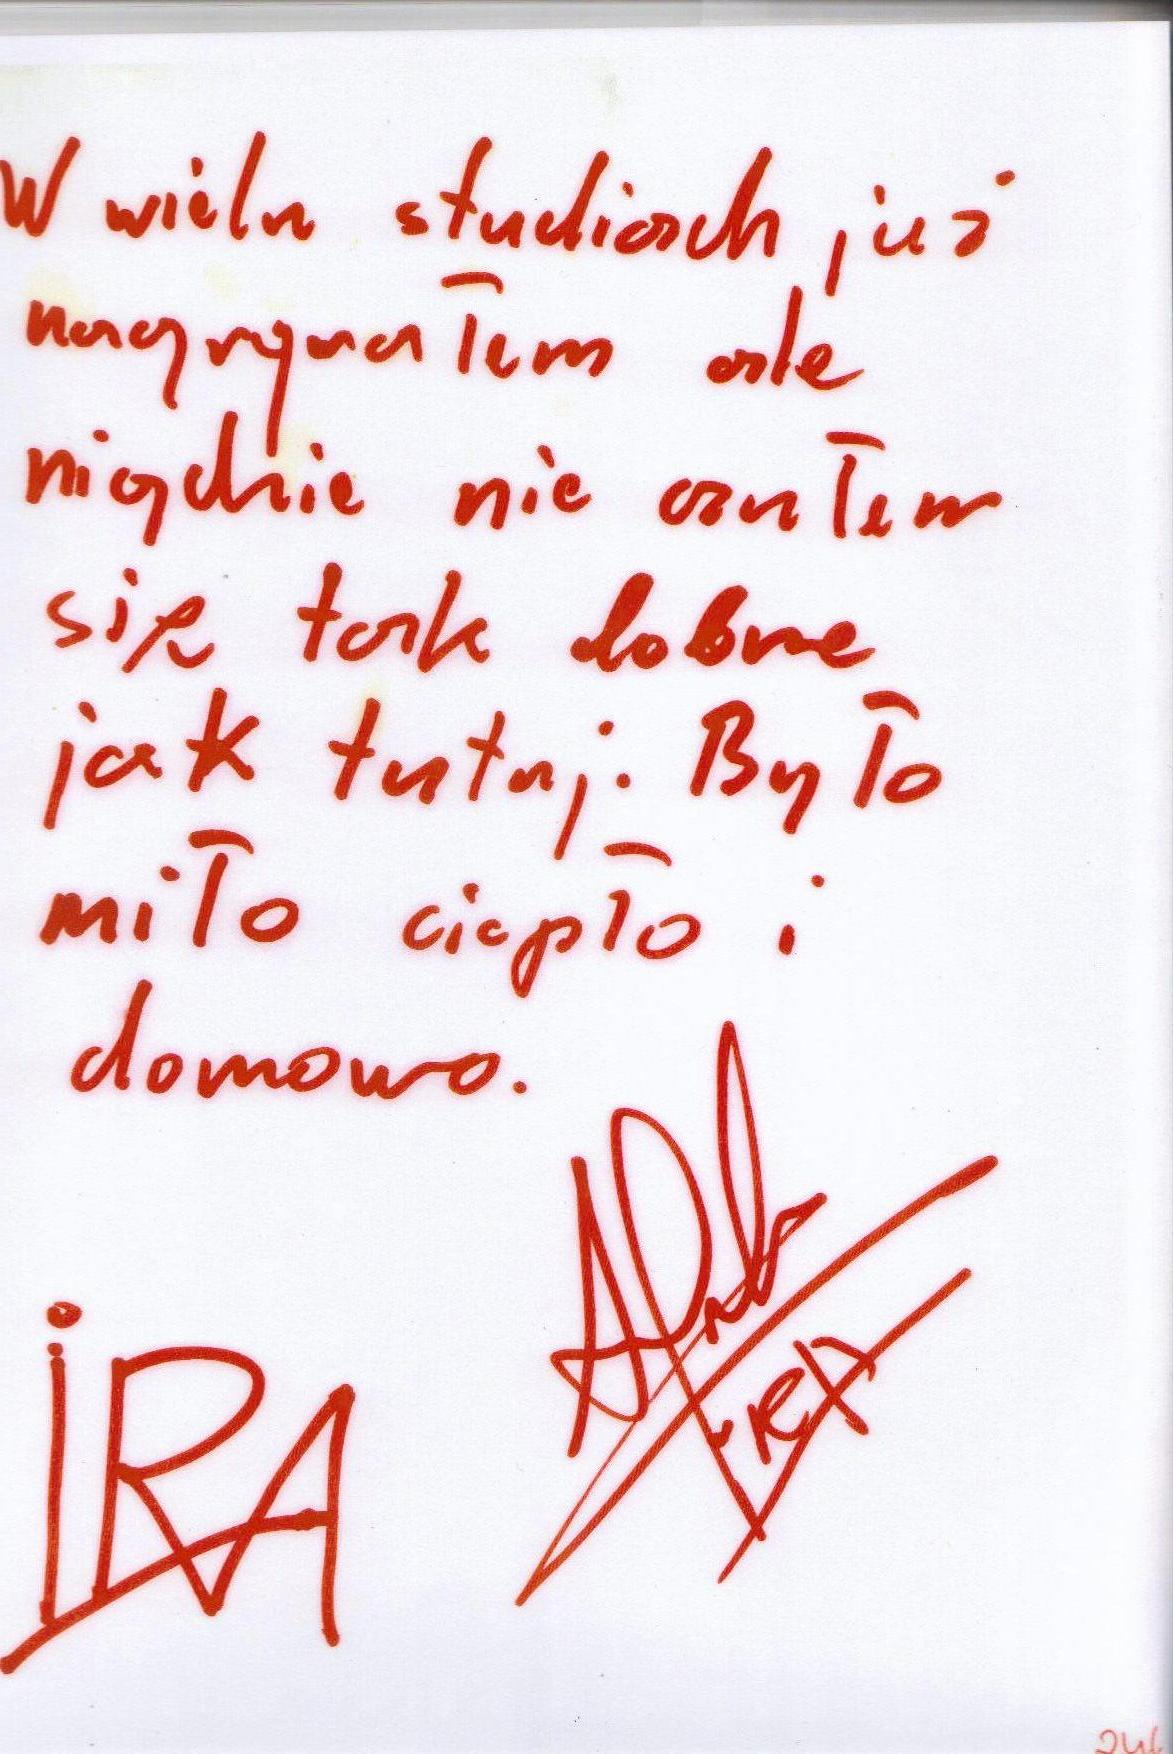 W wielu studiach już
nagrywałem ale
nigdzie nie czułem
się tak dobrze
jak tutaj. Było
miło ciepło i
domowo.
IRA